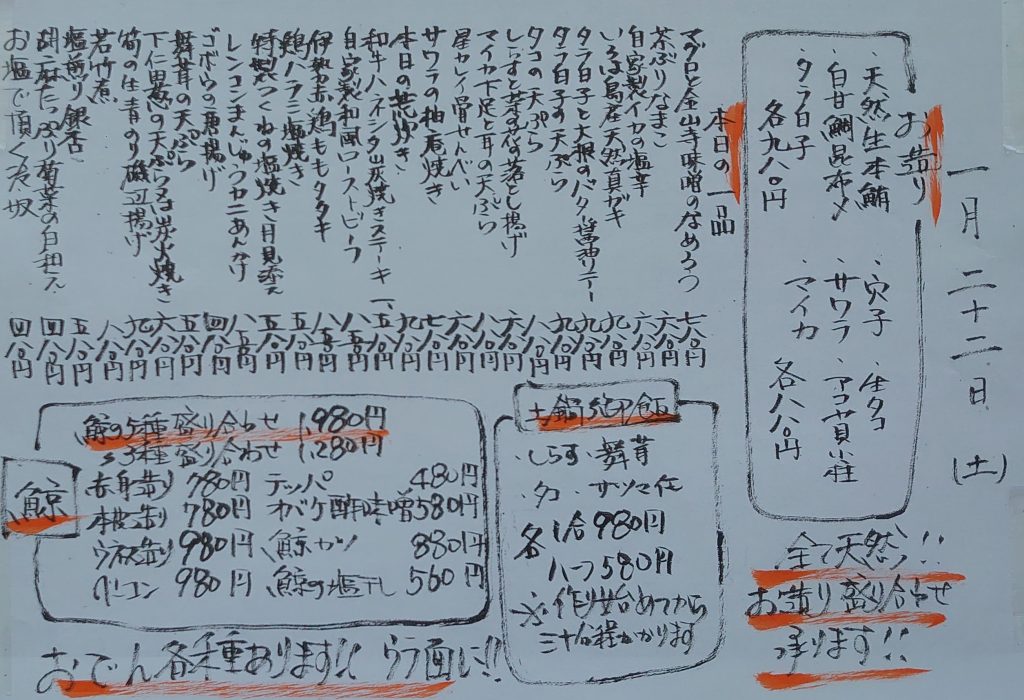 一月二十二日(土)
お造り
・天然生本鮪
・白甘鯛昆布〆
・タラ白子
各九八〇円
・穴子・生タコ
・サワラ・アコヤ貝小柱
・マイカ
各八八〇円
全て天然!!
お造り盛り合わせ
承ります!!
本日の一品
マグロと金山寺味噌のなめろう 七八〇円
茶ぶりなまこ 六八〇円
自家製イカの塩辛 六八〇円
いろは島産天然真ガキ 九八〇円
タラ白子と大根のバター醤油ソテー 九八〇円
タラ白子の天ぷら 九八〇円
タコの天ぷら 八八〇円
しらすと芽ねぎ落とし揚げ 六八〇円
マイカ下足と耳の天ぷら 八八〇円
星カレイ骨せんべい 六八〇円
サワラの柚庵焼き 七八〇円
本日の荒炊き 九八〇円
和牛ハネシタ山炭焼きステーキ 一、五八〇円
自家製和風ローストビーフ 八八〇円
伊勢赤鶏ももタタキ 八五〇円
鶏ハラミ塩焼き 五八〇円
特製つくねの塩焼き月見添え 五八〇円
レンコンまんじゅうカニあんかけ 八五〇円
ゴボウの唐揚げ 四八〇円
舞茸の天ぷら 五八〇円
下仁田葱の天ぷらor炭火焼き 六八〇円
筍の生青のり磯辺揚げ 九八〇円
若竹煮 八八〇円
塩煎り銀杏 五八〇円
胡麻たっぷり菊菜の白和え 四八〇円
お塩で頂くたぬき奴 四八〇円
土鍋御飯
・しらす・舞茸
・タコ・サツマ芋
各 1合980円
ハーフ580円
※作り始めてから
三十分程かかります
鯨
鯨の5種盛り合わせ 1,980円
〃3種盛り合わせ 1,280円
赤身造り 780円 テッパ 480円
本皮造り 780円 オバケ酢味噌 580円
ウネス造り 980円 鯨カツ 880円
ベーコン 980円 鯨の塩干し 560円
おでん各種あります!! ウラ面に!!